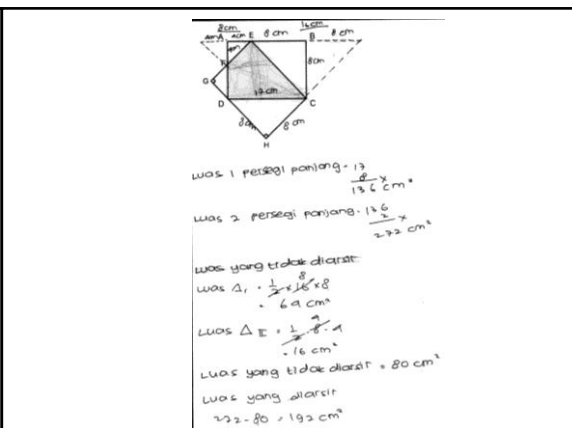 8cm 16cm
4cm A 4cm E 8 cm B 8 cm
4cm
R 8cm
G 17cm
D C
8cm 8 cm
H
Luas 1 persegi panjang = 17
8 x
136 cm²
Luas 2 persegi panjang = 136
2 x
272 cm²
Luas yang tidak diarsir
8
Luas Δ₁ = 1/2 x 16 x 8
= 64 cm²
4
Luas Δ II = 1/2 . 8 . 4
= 16 cm²
Luas yang tidak diarsir = 80 cm²
Luas yang diarsir
272 - 80 = 192 cm²